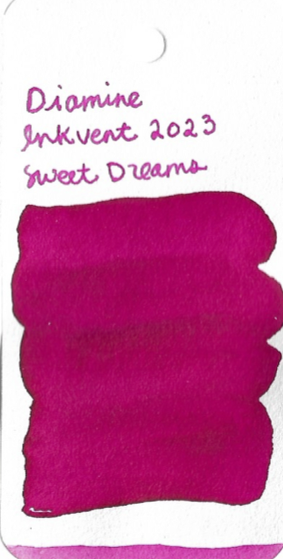 Diamine
Inkvent 2023
Sweet Dreams